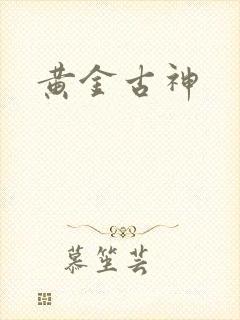 黄金古神
慕笙芸